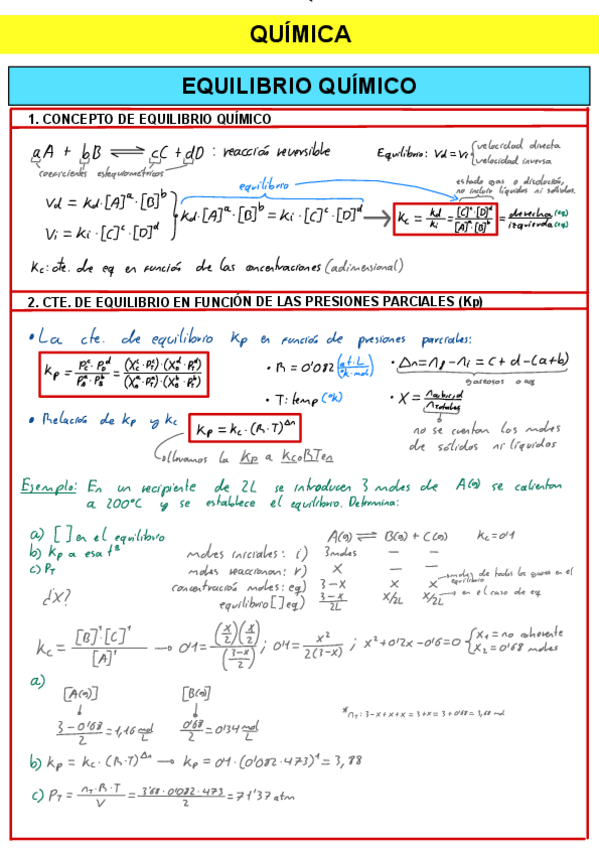 QUÍMICA
EQUILIBRIO QUÍMICO
1. CONCEPTO DE EQUILIBRIO QUÍMICO
aA + bB ⇌ cC + dD : reacción reversible
Equilibrio: Vd = Vi { velocidad directa
velocidad inversa
coeficientes estequiométricos
estado gas o disolución,
no incluir líquidos ni sólidos.
equilibrio
Vd = Kd·[A]ᵃ·[B]ᵇ
Vi = Ki·[C]ᶜ·[D]ᵈ
Kd·[A]ᵃ·[B]ᵇ = Ki·[C]ᶜ·[D]ᵈ → Kc = Kd/Ki = [C]ᶜ·[D]ᵈ/[A]ᵃ·[B]ᵇ = derecha (eq)/izquierda (eq)
Kc: cte. de eq en función de las concentraciones (adimensional)
2. CTE. DE EQUILIBRIO EN FUNCIÓN DE LAS PRESIONES PARCIALES (Kp)
• La cte. de equilibrio Kp en función de presiones parciales:
• R = 0'082 (at·L/ºK·mol)
• Δn = nf - ni = c + d - (a+b)
gaseosos o aq
• T: temp (ºK)
no se cuentan los moles
de sólidos ni líquidos
• Relación de Kp y Kc
Kp = Kc·(R·T)^Δn
llevamos la Kp a KcoRTen
Ejemplo: En un recipiente de 2L se introducen 3 moles de A(g) se calientan
a 200ºC y se establece el equilibrio. Determina:
a) [ ] en el equilibrio
A(g) ⇌ B(g) + C(g) Kc = 0'1
b) Kp a esa tª
moles iniciales: i) 3moles — —
c) PT
moles reaccionan: r) x — —
concentración moles: eq) 3-x x x → moles de todos los gases en el equilibrio
¿X?
equilibrio [ ] eq) 3-x/2L x/2L x/2L → en el caso de eq
Kc = [B]¹·[C]¹/[A]¹ → 0'1 = (x/2)(x/2)/(3-x/2) ; 0'1 = x²/2(3-x) ; x² + 0'2x - 0'6 = 0 { x₁ = no coherente
x₂ = 0'68 moles
a)
[A(g)] [B(g)]
*nT: 3-x+x+x = 3+x = 3+0'68 = 3,68 mol
3-0'68/2 = 1,16 mol/L 0'68/2 = 0'34 mol/L
b) Kp = Kc·(R·T)^Δn → Kp = 0'1·(0'082·473)¹ = 3,88
c) PT = nT·R·T/V = 3'68·0'082·473/2 = 71'37 atm